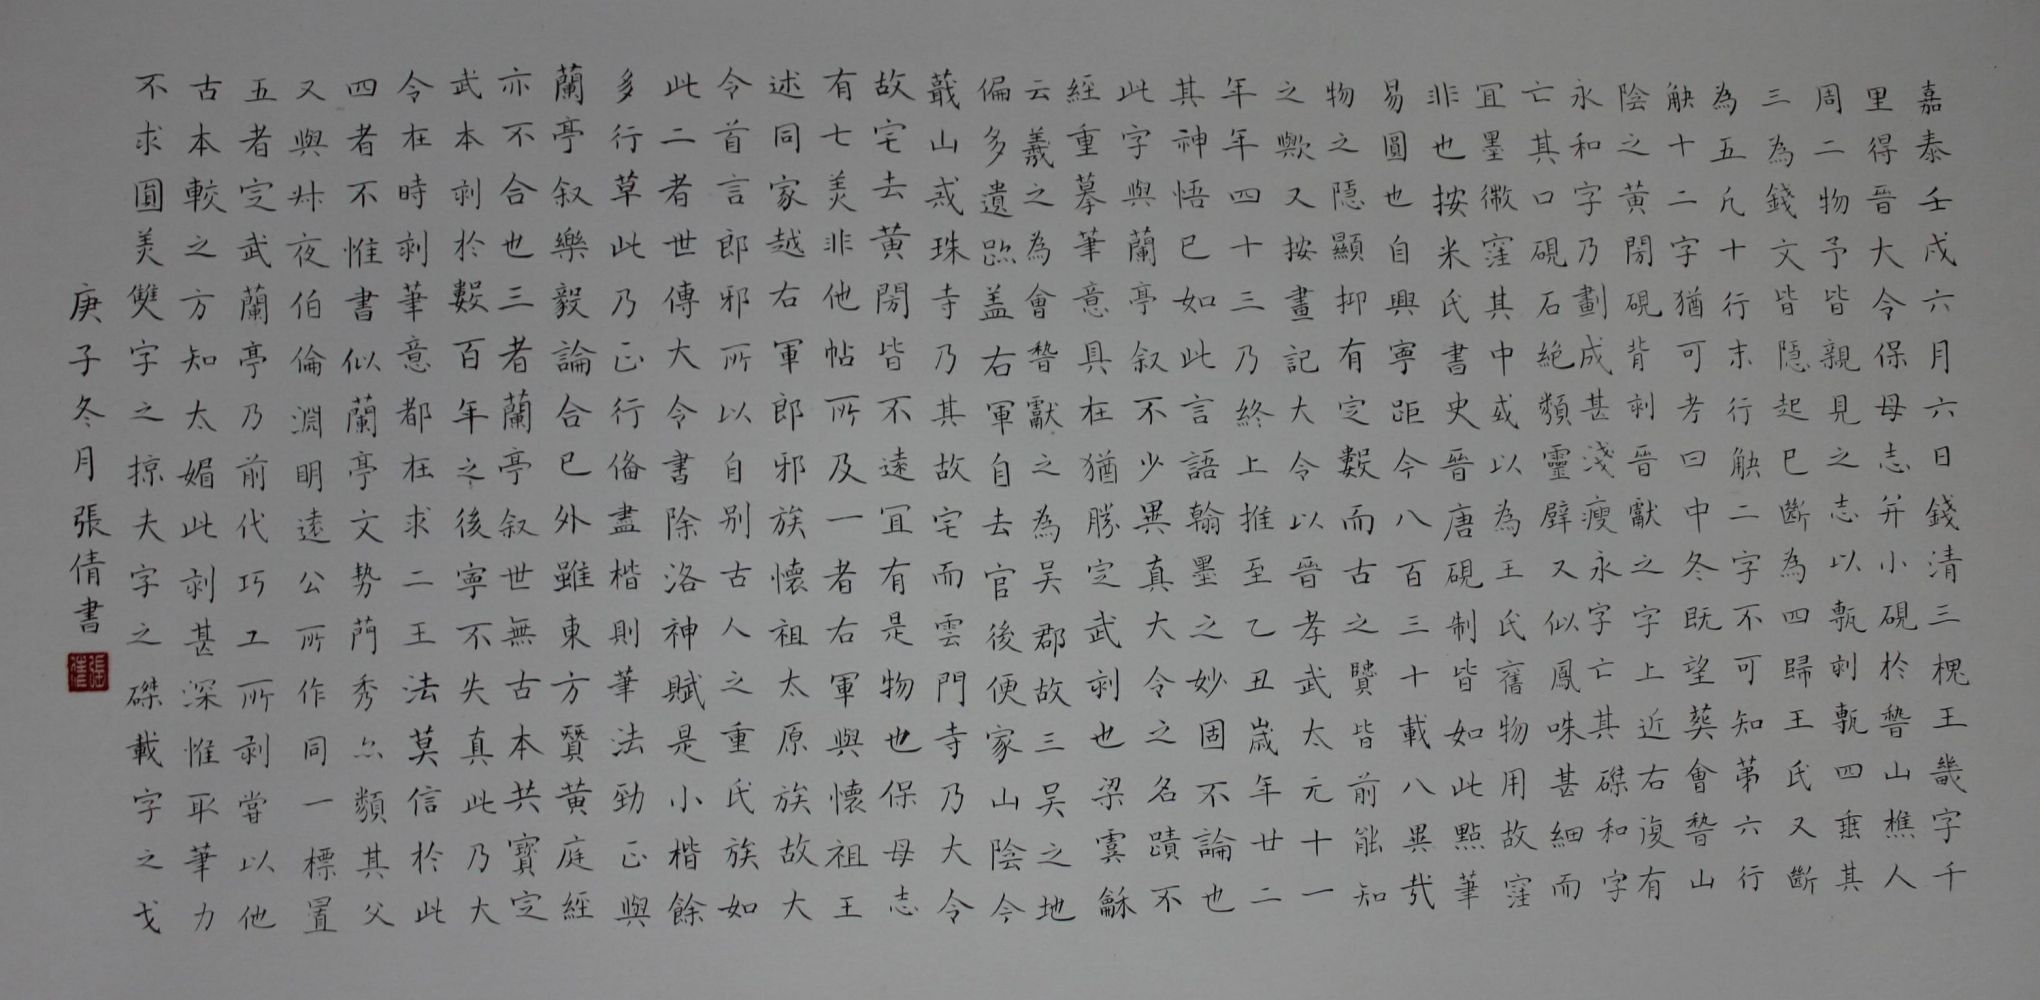 嘉泰壬戌六月六日錢清三槐王畿字千
里得晉大令保母志并小硯於嵆山樵人
周二物予皆親見之志以甎刻甎四垂其
三為錢文皆隱起已斷為四歸王氏又斷
為五凡十行末行觖二字不可知第六行
觖十二字猶可考曰中冬既望葬會嵆山
陰之黃閍硯背刻晉獻之字上近右復有
永和字乃劃成甚淺瘦永字亡其磔和字
亡其口硯石絶類靈壁又似鳳咮甚細而
宜墨微窪其中或以為王氏舊物用故窪
非也按米氏書史晉唐硯制皆如此點筆
易圓也自興寧距今八百三十載八異哉
物之隱顯抑有定數而古之贒皆前能知
之歟又按畫記大令以晉孝武太元十一
年年四十三乃終上推至乙丑歲年廿二
其神悟已如此言語翰墨之妙固不論也
此字與蘭亭叙不少異真大令之名蹟不
經重摹筆意具在猶勝定武刻也梁虞龢
云羲之為會嵆獻之為吳郡故三吳之地
偏多遺跡盖右軍自去官後便家山陰今
蕺山戒珠寺乃其故宅而雲門寺乃大令
故宅去黃閍皆不遠宜有是物也保母志
有七美非他帖所及一者右軍與懷祖王
述同家越右軍郎邪族懷祖太原族故大
令首言郎邪所以自别古人之重氏族如
此二者世傳大令書除洛神賦是小楷餘
多行草此乃正行俻盡楷則筆法勁正與
蘭亭叙樂毅論合已外雖東方贒黃庭經
亦不合也三者蘭亭叙世無古本共寶定
武本刻於數百年之後寧不失真此乃大
令在時刻筆意都在求二王法莫信於此
四者不惟書似蘭亭文勢蕳秀亦類其父
又與叔夜伯倫淵明遠公所作同一標置
五者定武蘭亭乃前代巧工所刻嘗以他
古本較之方知太媚此刻甚深惟取筆力
不求圓美雙字之掠夫字之磔載字之戈
庚子冬月張倩書